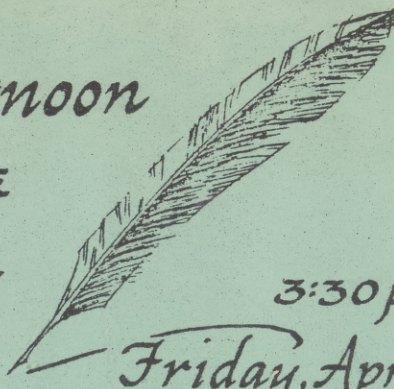 noon
3:30 p
Friday, Apr